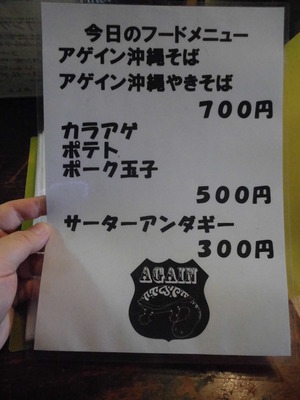 今日のフードメニュー
アゲイン沖縄そば
アゲイン沖縄やきそば
700円
カラアゲ
ポテト
ポーク玉子
500円
サーターアンダギー
300円
AGAIN